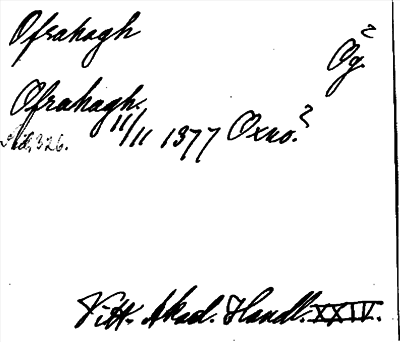 Ofrahagh
Og?
Ofrahagh. 11/11 1377 Oxno.?
326.
Vitt. Akad. Handl. XXIV.